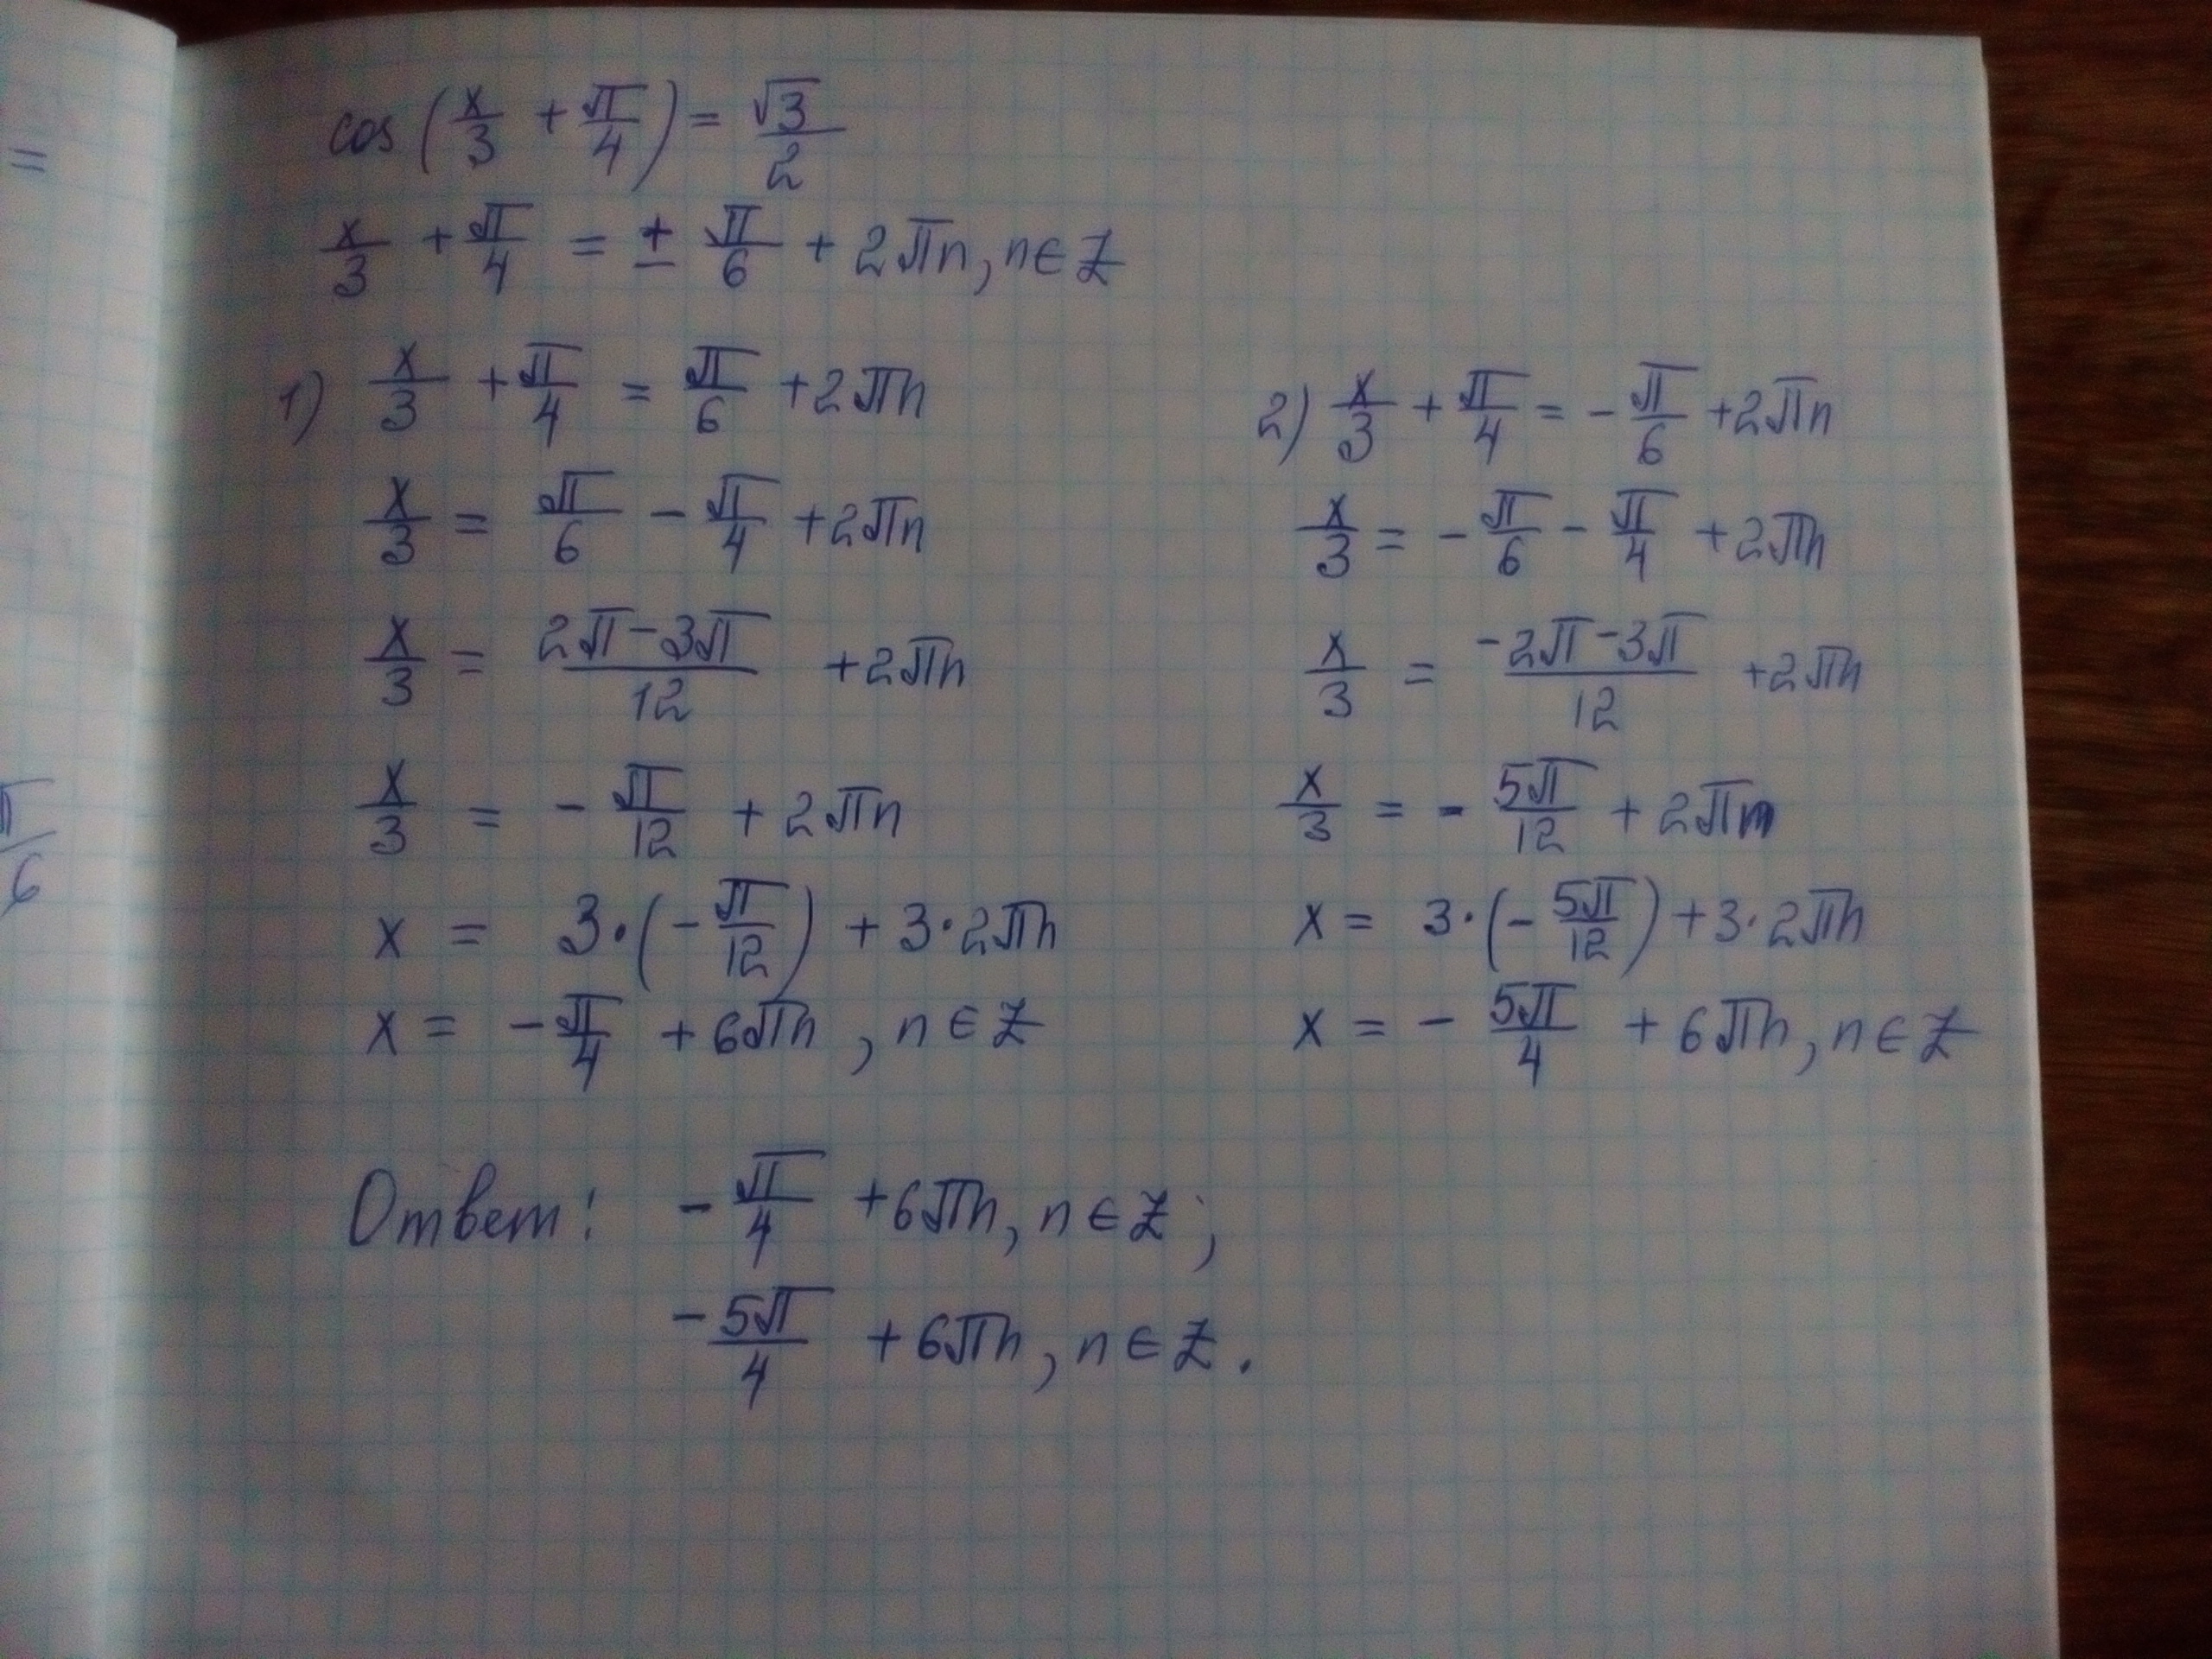 =
π/6
cos(x/3 + π/4) = √3/2
x/3 + π/4 = ± π/6 + 2πn, n∈Z
1) x/3 + π/4 = π/6 + 2πn
x/3 = π/6 - π/4 + 2πn
x/3 = (2π-3π)/12 + 2πn
x/3 = - π/12 + 2πn
x = 3·(-π/12) + 3·2πn
x = -π/4 + 6πn, n∈Z
2) x/3 + π/4 = - π/6 + 2πn
x/3 = - π/6 - π/4 + 2πn
x/3 = (-2π-3π)/12 + 2πn
x/3 = - 5π/12 + 2πn
x = 3·(-5π/12) + 3·2πn
x = - 5π/4 + 6πn, n∈Z
Ответ: - π/4 + 6πn, n∈Z;
-5π/4 + 6πn, n∈Z.